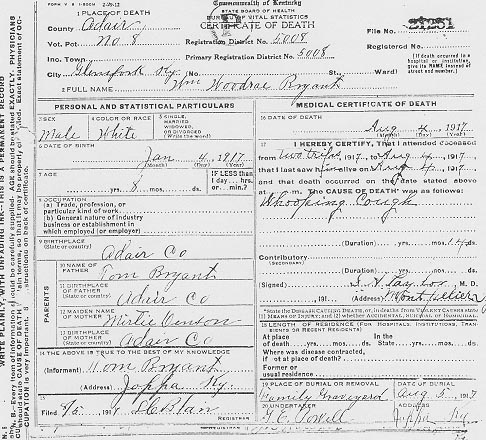 FORM V. S. 1-
Commonwealth of Kentucky
STATE BOARD OF HEALTH
BUREAU OF VITAL STATISTICS
CERTIFICATE OF DEATH
1 PLACE OF DEATH
County Adair
Vot. Pct. No 8
Registration District No. 5008
File No.
Inc. Town
Primary Registration District No. 5008
Registered No.
City Glensfork Ky. (No. St., Ward)
(If death occurred in a hospital or institution, give its NAME instead of street and number.)
2 FULL NAME Wm Woodrae Bryant
PERSONAL AND STATISTICAL PARTICULARS
3 SEX Male
4 COLOR OR RACE White
5 SINGLE, MARRIED WIDOWED, OR DIVORCED (Write the word)
6 DATE OF BIRTH
Jan 4, 1917
(Month) (Day) (Year)
7 AGE
yrs. 8 mos. ds.
IF LESS than 1 day... hrs. or... min.?
8 OCCUPATION
(a) Trade, profession, or particular kind of work
(b) General nature of industry business or establishment in which employed (or employer)
9 BIRTHPLACE (State or country) Adair Co
PARENTS
10 NAME OF FATHER Tom Bryant
11 BIRTHPLACE OF FATHER (State or country) Adair Co
12 MAIDEN NAME OF MOTHER
13 BIRTHPLACE OF MOTHER (State or country) Adair Co
14 THE ABOVE IS TRUE TO THE BEST OF MY KNOWLEDGE
(Informant) Tom Bryant
(Address) Joppa Ky.
15
Filed 191
REGISTRAR
MEDICAL CERTIFICATE OF DEATH
16 DATE OF DEATH
Aug 4, 1917
(Month) (Day) (Year)
17 I HEREBY CERTIFY, That I attended deceased
from 1917, to Aug 4, 1917,
that I last saw him alive on Aug 4, 1917,
and that death occurred on the date stated above
at m. The CAUSE OF DEATH* was as follows:
Whooping Cough
(Duration) yrs. mos. ds.
Contributory (SECONDARY)
(Duration) yrs. mos. ds.
(Signed) M. D.
191 (Address) Montpelier
*State the DISEASE CAUSING DEATH, or, in deaths from VIOLENT CAUSES state (1) MEANS OF INJURY; and (2) whether ACCIDENTAL, SUICIDAL OR HOMICIDAL.
18 LENGTH OF RESIDENCE (FOR HOSPITALS, INSTITUTIONS, TRANSIENTS OR RECENT RESIDENTS)
At place of death yrs. mos. ds. In the State yrs. mos. ds.
Where was disease contracted, if not at place of death?
Former or usual residence
19 PLACE OF BURIAL OR REMOVAL
Family Graveyard
DATE OF BURIAL
Aug 5, 1917
20 UNDERTAKER
ADDRESS
Joppa Ky